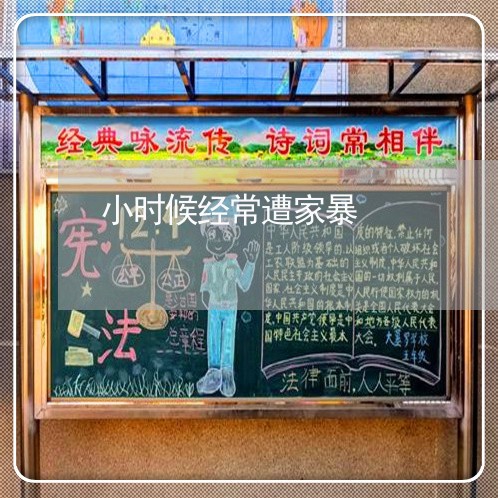 经典咏流传 诗词常相伴
小时候经常遭家暴
12·4
宪
法
公平
公正
总章程
中华人民共和国
是工人阶级领导的,以
工农联盟为基础的
人民民主专政的社会主义
国家,社会主义制度是中
华人民共和国的根本制
度,中国共产党领导是中
国特色社会主义最本
质的特征,禁止任何
组织或者个人破坏社会
主义制度,中华人民共和
国的一切权利属于人民,
人民行使国家权力的机
关是全国人民代表大会
和地方各级人民代表
大会。
五年级
法律面前,人人平等